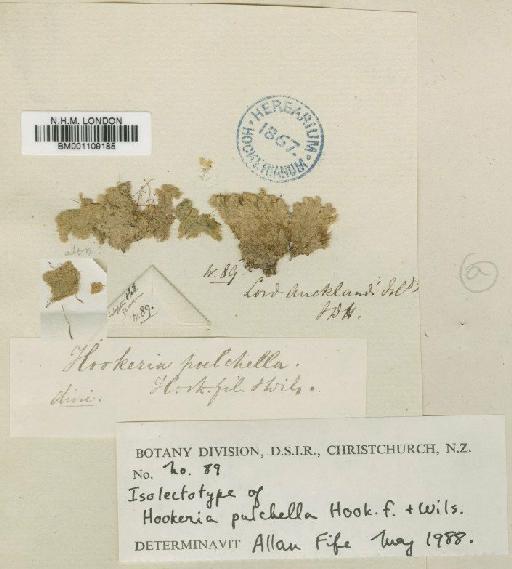 N.H.M. LONDON
BM001109185
HERBARIUM HOOKERIANUM
1867.
W. 89
Lord Auckland's Isl.ds
JDH.
a
W.89.
Hookeria pulchella.
Hook. fil. & Wils.
BOTANY DIVISION, D.S.I.R., CHRISTCHURCH, N.Z.
No. No. 89
Isolectotype of
Hookeria pulchella Hook. f. + Wils.
DETERMINAVIT Allan Fife May 1988.